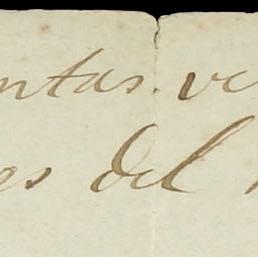 ntas. ve
es del